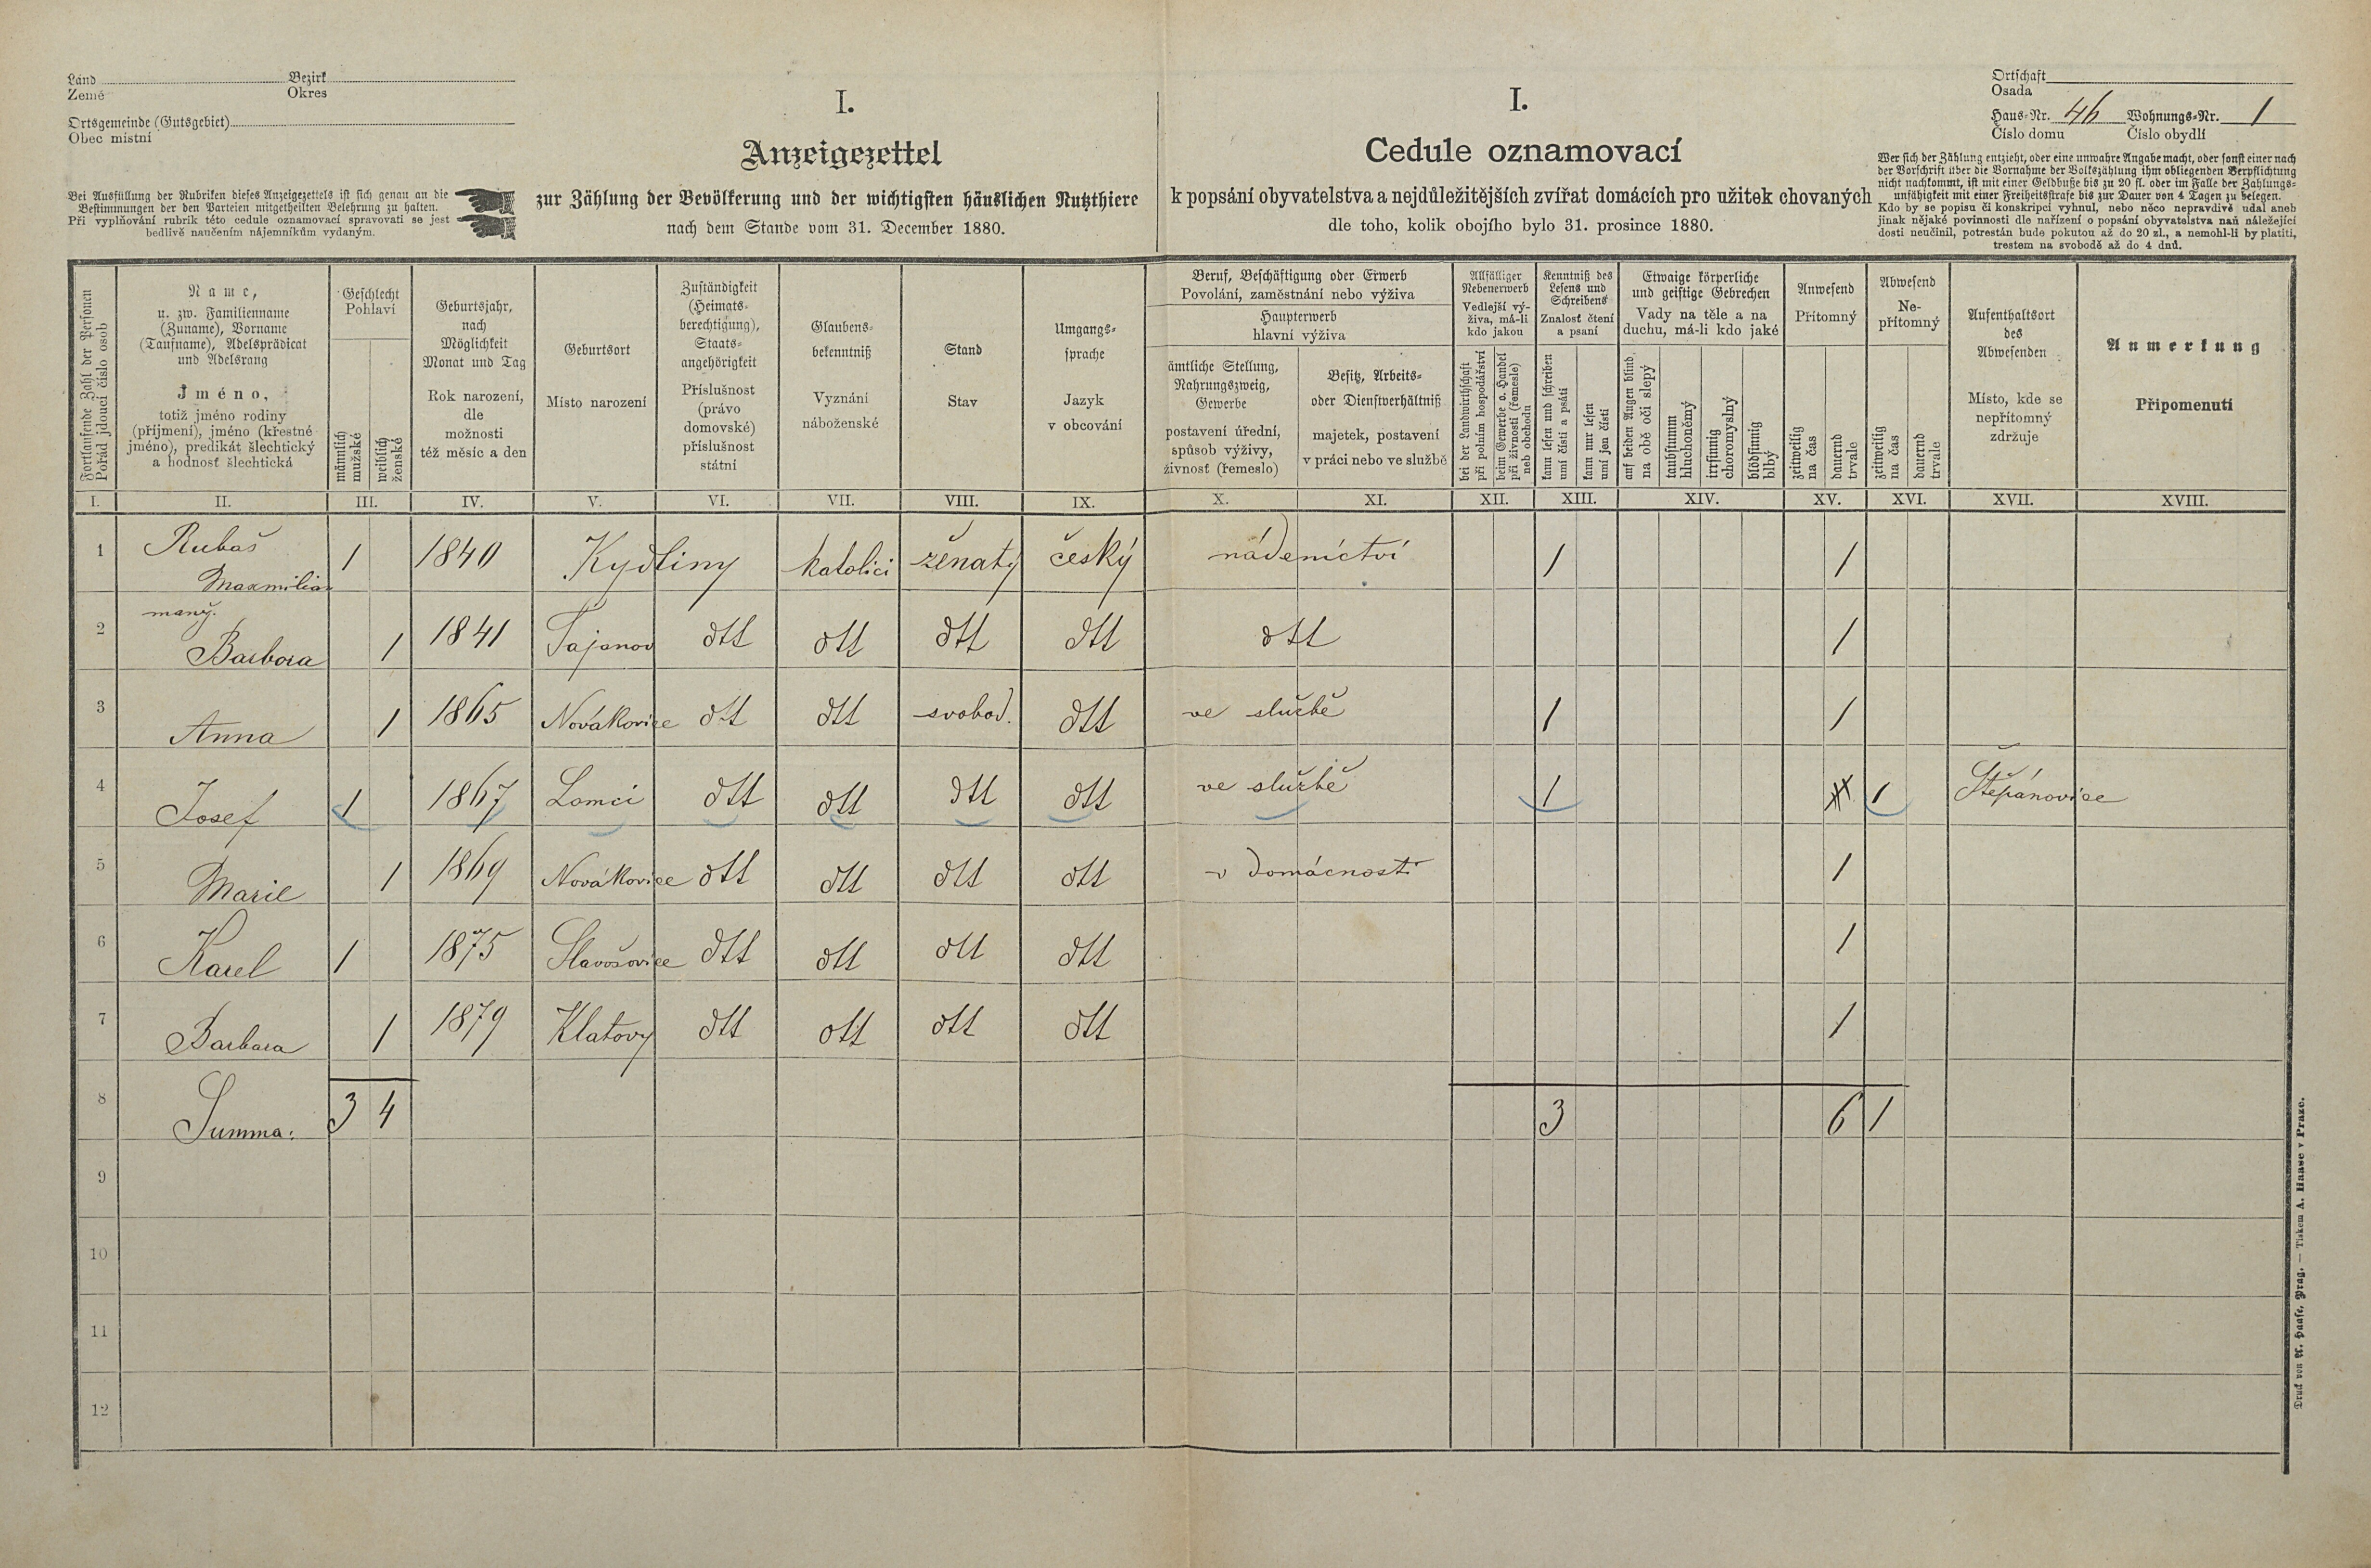 Land Bezirk
Země Okres
Ortsgemeinde (Gutsgebiet)
Obec místní
Bei Ausfüllung der Rubriken dieses Anzeigezettels ist sich genau an die
Bestimmungen der den Parteien mitgetheilten Belehrung zu halten.
Při vyplňování rubrik této cedule oznamovací spravovati se jest
bedlivě naučením nájemníkům vydaným.
I.
Anzeigezettel
zur Zählung der Bevölkerung und der wichtigsten häuslichen Nutzthiere
nach dem Stande vom 31. December 1880.
I.
Cedule oznamovací
k popsání obyvatelstva a nejdůležitějších zvířat domácích pro užitek chovaných
dle toho, kolik obojího bylo 31. prosince 1880.
Ortschaft
Osada
Haus-Nr. 46 Wohnungs-Nr. 1
Číslo domu Číslo obydlí
Wer sich der Zählung entzieht, oder eine unwahre Angabe macht, oder sonst einer nach
der Vorschrift über die Vornahme der Volkszählung ihm obliegenden Verpflichtung
nicht nachkommt, ist mit einer Geldbuße bis zu 20 fl. oder im Falle der Zahlungs-
unfähigkeit mit einer Freiheitsstrafe bis zur Dauer von 4 Tagen zu belegen.
Kdo by se popisu či konskripcí vyhnul, nebo něco nepravdivě udal aneb
jinak nějaké povinnosti dle nařízení o popsání obyvatelstva naň náležející
dosti neučinil, potrestán bude pokutou až do 20 zl., a nemohl-li by platiti,
trestem na svobodě až do 4 dnů.
Fortlaufende Zahl der Personen
Pořád jdoucí číslo osob
Name,
u. zw. Familienname
(Zuname), Vorname
(Taufname), Adelsprädicat
und Adelsrang
Jméno,
totiž jméno rodiny
(příjmení), jméno (křestné
jméno), predikát šlechtický
a hodnosť šlechtická
Geschlecht
Pohlaví
männlich
mužské
weiblich
ženské
Geburtsjahr,
nach
Möglichkeit
Monat und Tag
Rok narození,
dle
možnosti
též měsíc a den
Geburtsort
Místo narození
Zuständigkeit
(Heimats-
berechtigung),
Staats-
angehörigkeit
Příslušnost
(právo
domovské)
příslušnost
státní
Glaubens-
bekenntniß
Vyznání
náboženské
Stand
Stav
Umgangs-
sprache
Jazyk
v obcování
Beruf, Beschäftigung oder Erwerb
Povolání, zaměstnání nebo výživa
Haupterwerb
hlavní výživa
ämtliche Stellung,
Nahrungszweig,
Gewerbe
postavení úřední,
spůsob výživy,
živnosť (řemeslo)
Besitz, Arbeits-
oder Dienstverhältniß
majetek, postavení
v práci nebo ve službě
Allfälliger
Nebenerwerb
Vedlejší vý-
živa, má-li
kdo jakou
bei der Landwirthschaft
při polním hospodářství
beim Gewerbe o. Handel
při živnosti (řemesle)
neb obchodu
Kenntniß des
Lesens und
Schreibens
Znalosť čtení
a psaní
kann lesen und schreiben
umí čísti a psáti
kann nur lesen
umí jen čísti
Etwaige körperliche
und geistige Gebrechen
Vady na těle a na
duchu, má-li kdo jaké
auf beiden Augen blind
na obě oči slepý
taubstumm
hluchoněmý
irrsinnig
choromyslný
blödsinnig
blbý
Anwesend
Přítomný
zeitweilig
na čas
dauernd
trvale
Abwesend
Ne-
přítomný
zeitweilig
na čas
dauernd
trvale
Aufenthaltsort
des
Abwesenden
Místo, kde se
nepřítomný
zdržuje
Anmerkung
Připomenutí
I. II. III. IV. V. VI. VII. VIII. IX. X. XI. XII. XIII. XIV. XV. XVI. XVII. XVIII.
1 Rubaš
Maxmilian 1 1840 Kydliny katolici ženatý český nádenictví 1 1
2 manž.
Barbora 1 1841 Tajanov dtt dtt dtt dtt dtt 1
3 Anna 1 1865 Novákovice dtt dtt svobod. dtt ve službě 1 1
4 Josef 1 1867 Lomci dtt dtt dtt dtt ve službě 1 1 Štěpánovice
5 Marie 1 1869 Novákovice dtt dtt dtt dtt v domácnosti 1
6 Karel 1 1875 Slavošovice dtt dtt dtt dtt 1
7 Barbara 1 1879 Klatovy dtt dtt dtt dtt 1
8 Summa: 3 4 3 6 1
9
10
11
12
Druck von A. Haase, Prag. — Tiskem A. Haase v Praze.